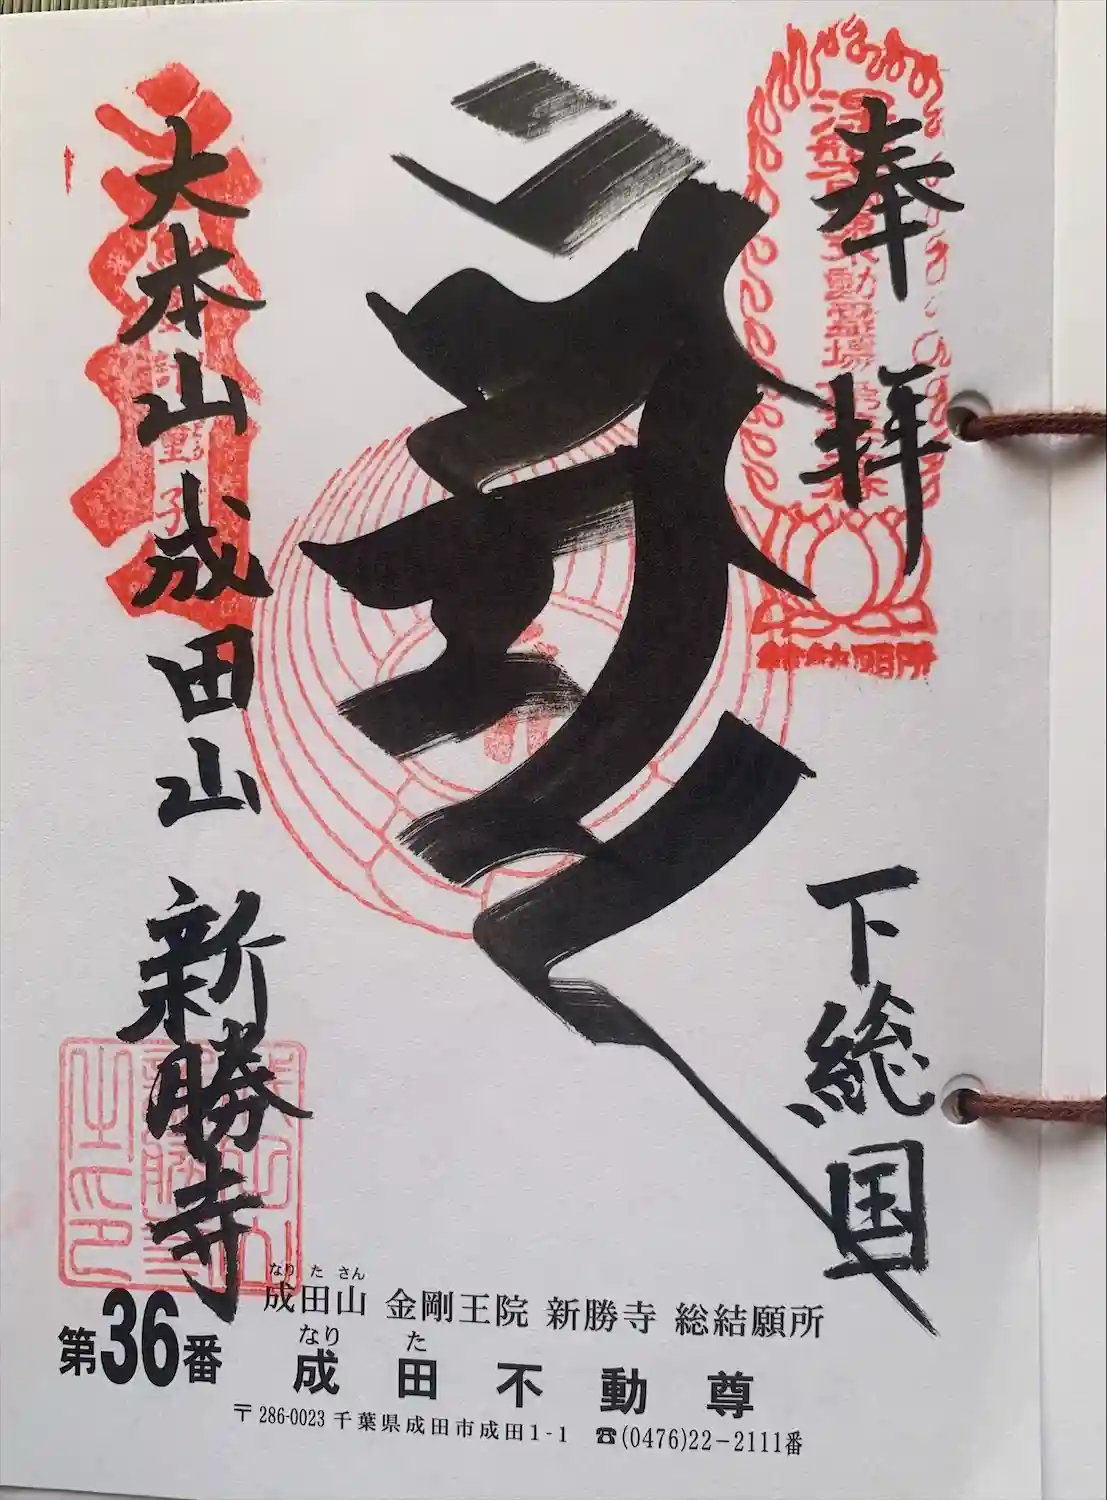 奉拝
下総国
大本山成田山新勝寺
なりたさん
成田山 金剛王院 新勝寺 総結願所
第36番
なり た
成田不動尊
〒286-0023 千葉県成田市成田1-1 ☎(0476)22-2111番